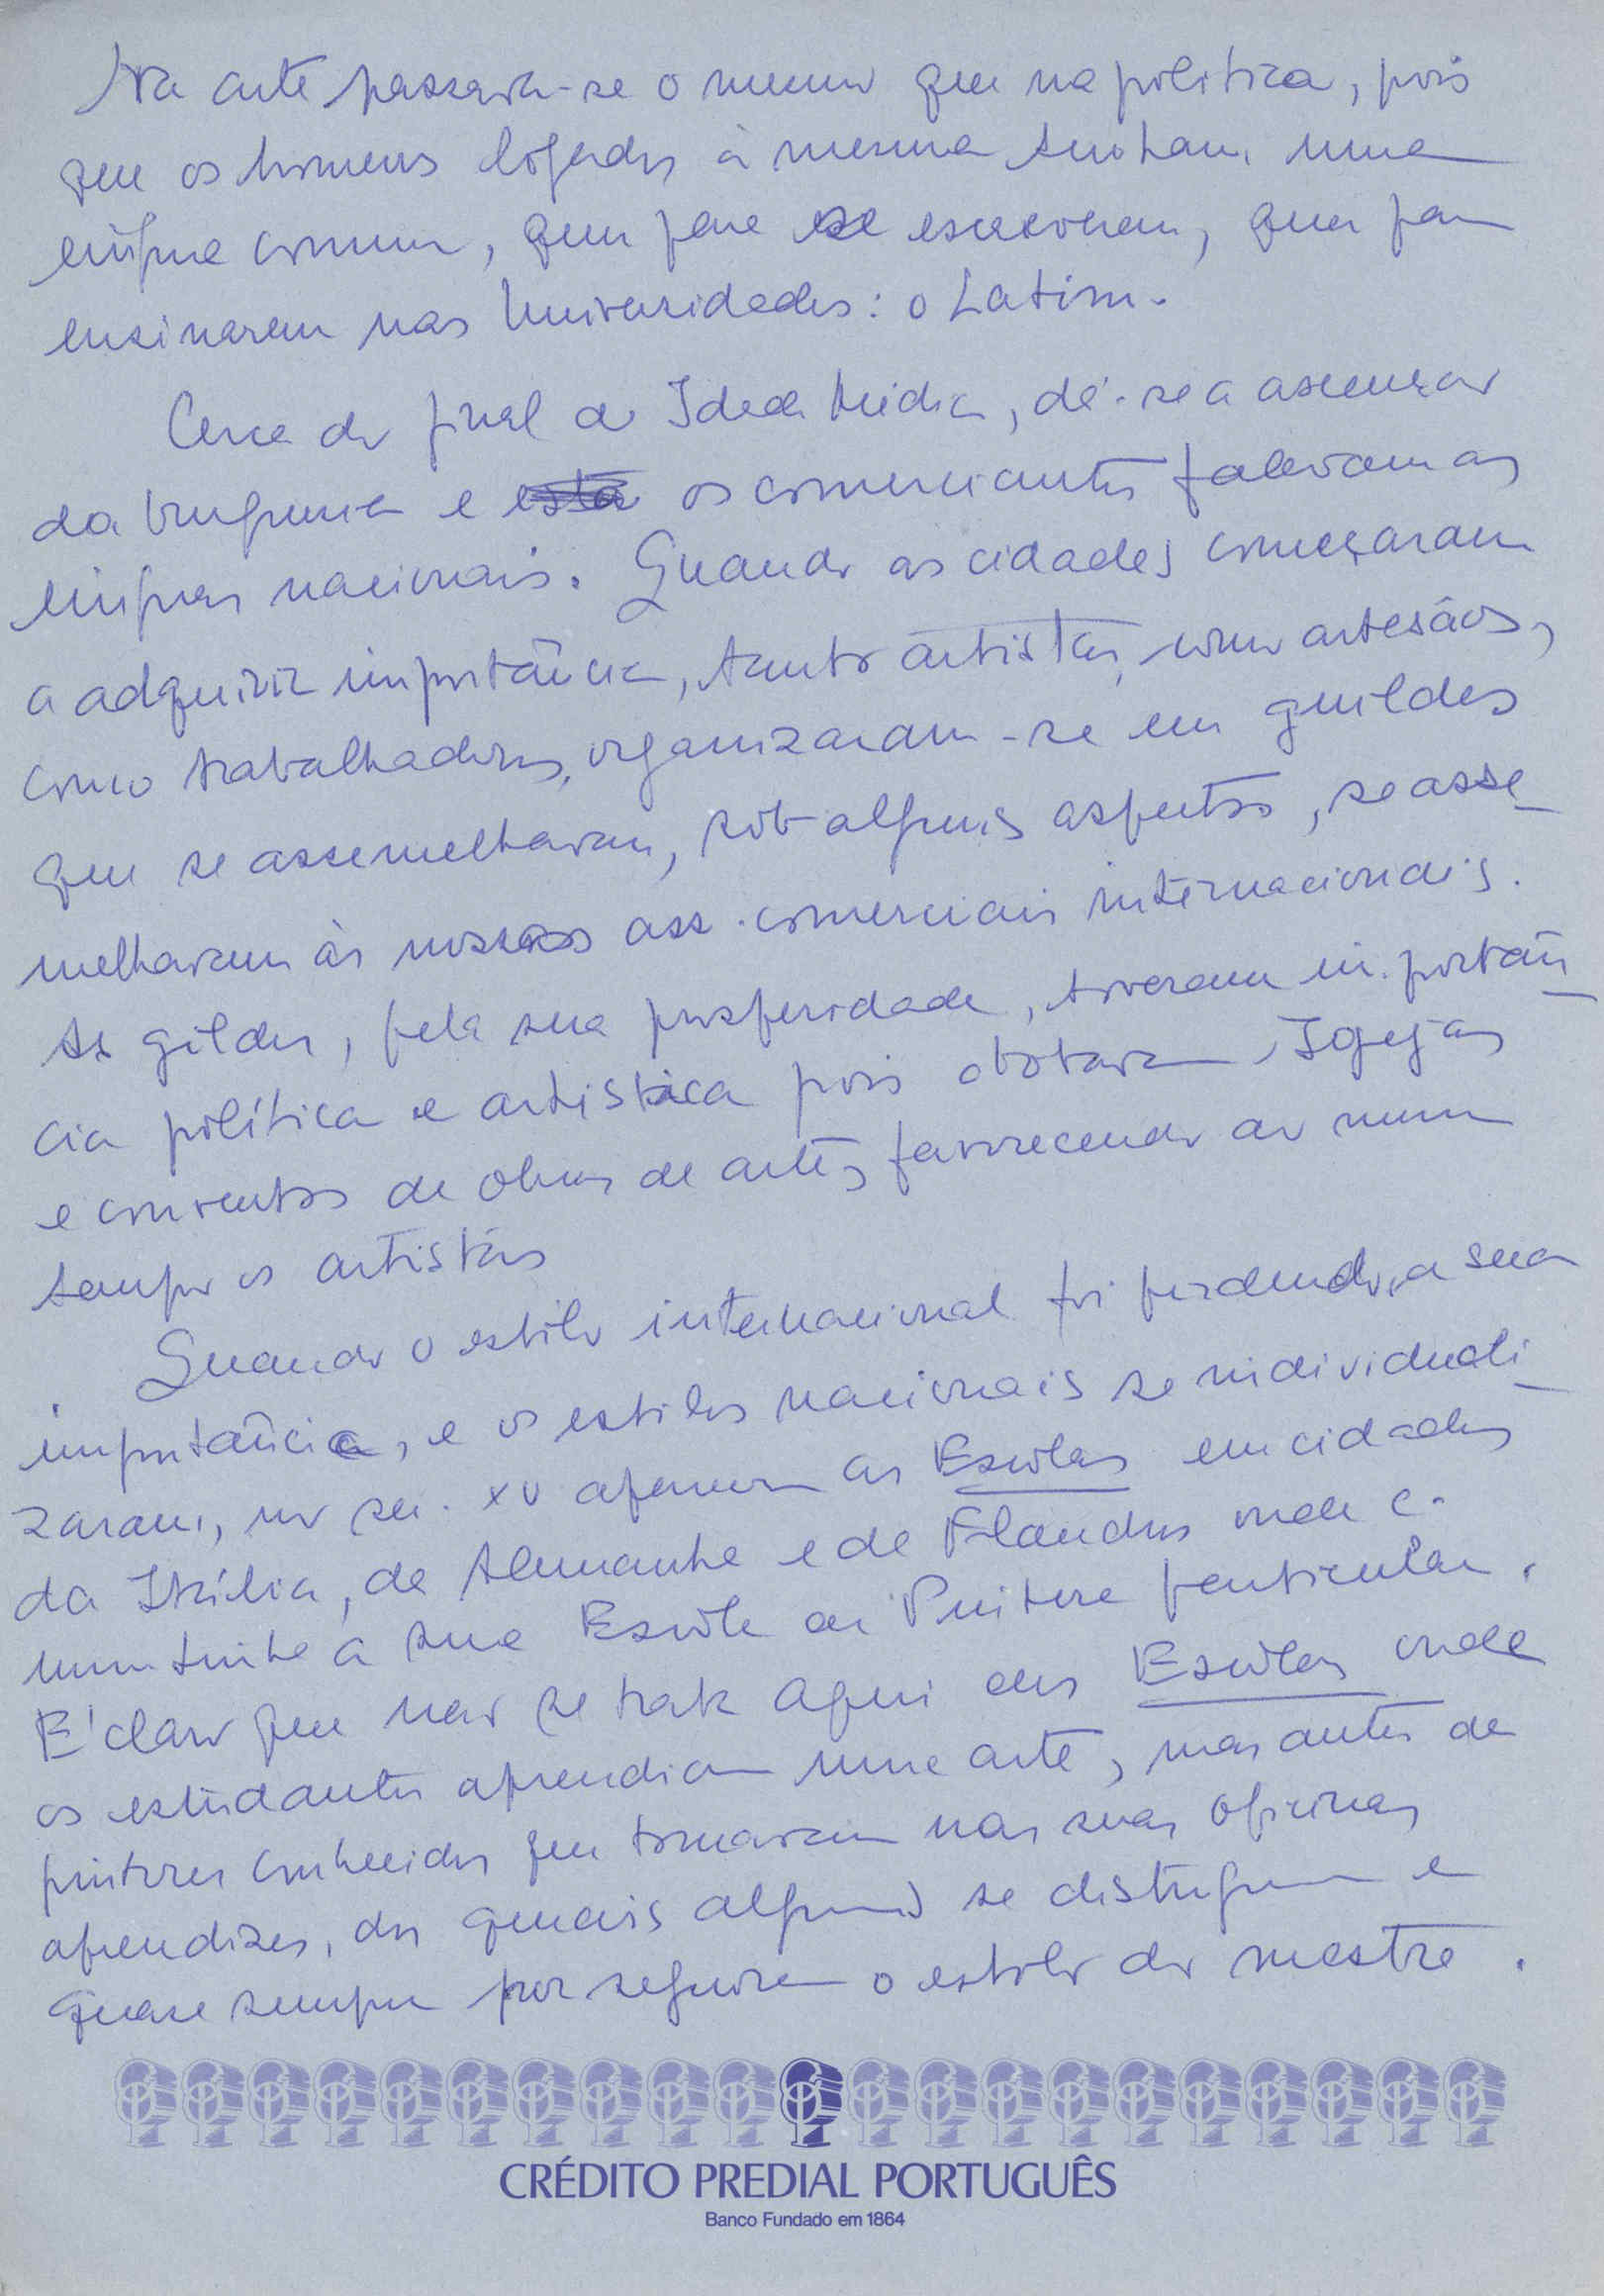 Na arte passava-se o mesmo que na politica, pois
que os homens logados à mesma tinham uma
língua comum, quer para se escreverem, quer para
ensinarem nas Universidades: o Latim.
Cerca do final da Idade Média, dá-se a ascenção
da burguesia e os comerciantes falavam as
línguas nacionais. Quando as cidades começaram
a adquirir importância, tanto artistas, como artesãos,
como trabalhadores, organizaram-se em guildas
que se assemelhavam, sob alguns aspectos, se asse_
melhavam às nossas ass. comerciais internacionais.
As gildas, pela sua prosperidade, tiveram importân_
cia política e artistica pois dotavam Igrejas
e conventos de obras de arte, favorecendo ao mesmo
tempo os artistas
Quando o estilo internacional foi perdendo, a sua
importância, e os estilos nacionais se individuali_
zaram, no séc. XV aparecem as Escolas em cidades
da Itália, da Alemanha e da Flandres onde c.
uma tinha a sua Escola de Pintura particular.
É claro que não se trata aqui das Escolas onde
os estudantes aprendiam uma arte, mas antes de
pintores conhecidos que tomavam nas suas oficinas
aprendizes, dos quais alguns se distinguem e
quase sempre por seguirem o estilo do mestre.
CRÉDITO PREDIAL PORTUGUÊS
Banco Fundado em 1864